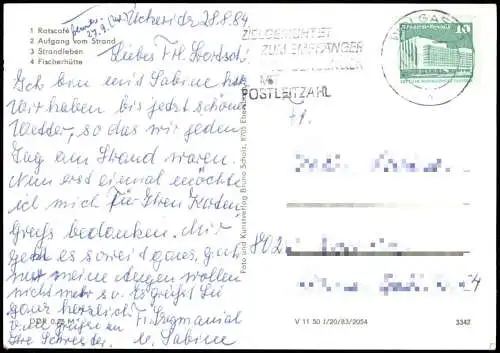 1 Ratscafé
2 Aufgang vom Strand
3 Strandleben
4 Fischerhütte
27.9.
Ückeritz 28.8.84
Liebes Frl.
Ich bin mit Sabine hier
Wir haben bis jetzt schönes
Wetter, so das wir jeden
Tag am Strand waren.
Nun erst einmal möchte
ich mich für Ihren Karten
Gruß bedanken. Mir
geht es soweit ganz gut
nur meine Augen wollen
nicht mehr so. Es grüßt Sie
ganz herzlich Fr. Zugmanial
Viele Grüße an
Ihre Schwester u. Sabine
DDR 0,25 M
Foto und Kunstverlag Bruno Scholz, 8705
ZIELGERICHTET
ZUM EMPFÄNGER
MIT
POSTLEITZAHL
WOLGAST
10
802
4
V 11 50 J/20/83/2054
3342